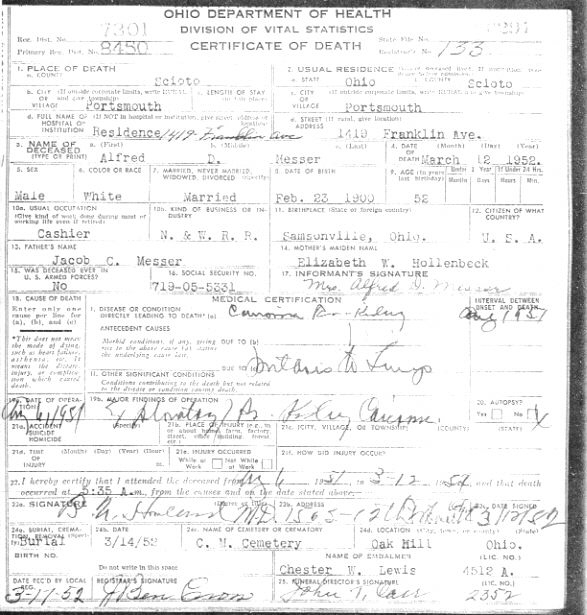 OHIO DEPARTMENT OF HEALTH
DIVISION OF VITAL STATISTICS
CERTIFICATE OF DEATH
Reg. Dist. No. 7301
State File No.
Primary Reg. Dist. No. 8450
Registrar's No. 133
1. PLACE OF DEATH
a. COUNTY Scioto
2. USUAL RESIDENCE
a. STATE Ohio
b. COUNTY Scioto
b. CITY OR VILLAGE Portsmouth
c. LENGTH OF STAY
c. CITY OR VILLAGE Portsmouth
d. FULL NAME OF HOSPITAL OR INSTITUTION Residence/1419 Franklin Ave
d. STREET (If rural, give location) ADDRESS 1419 Franklin Ave.
3. NAME OF DECEASED (TYPE OR PRINT)
a. (First) Alfred
b. (Middle) D.
c. (Last) Messer
4. DATE OF DEATH (Month) (Day) (Year) March 12 1952.
5. SEX Male
6. COLOR OR RACE White
7. MARRIED, NEVER MARRIED, WIDOWED, DIVORCED Married
8. DATE OF BIRTH Feb. 23 1900
9. AGE 52
10a. USUAL OCCUPATION Cashier
10b. KIND OF BUSINESS OR INDUSTRY N. & W. R. R.
11. BIRTHPLACE (State or foreign country) Samsonville, Ohio.
12. CITIZEN OF WHAT COUNTRY? U. S. A.
13. FATHER'S NAME Jacob C. Messer
14. MOTHER'S MAIDEN NAME Elizabeth W. Hollenbeck
15. WAS DECEASED EVER IN U. S. ARMED FORCES? No
16. SOCIAL SECURITY NO. 719-05-5331
17. INFORMANT'S SIGNATURE Mrs. Alfred D. Messer
18. CAUSE OF DEATH
Enter only one cause per line for (a), (b), and (c)
MEDICAL CERTIFICATION
INTERVAL BETWEEN ONSET AND DEATH
I. DISEASE OR CONDITION DIRECTLY LEADING TO DEATH* (a)
1951
*This does not mean the mode of dying, such as heart failure, asthenia, etc. It means the disease, injury, or complication which caused death.
ANTECEDENT CAUSES
Morbid conditions, if any, giving rise to the above cause (a) stating the underlying cause last.
DUE TO (b)
DUE TO (c)
II. OTHER SIGNIFICANT CONDITIONS
Conditions contributing to the death but not related to the disease or condition causing death.
19a. DATE OF OPERATION
19b. MAJOR FINDINGS OF OPERATION
20. AUTOPSY?
Yes No X
21a. ACCIDENT SUICIDE HOMICIDE
21b. PLACE OF INJURY
21c. (CITY, VILLAGE, OR TOWNSHIP) (COUNTY) (STATE)
21d. TIME OF INJURY (Month) (Day) (Year) (Hour)
21e. INJURY OCCURRED
While at Work Not While at Work
21f. HOW DID INJURY OCCUR?
22. I hereby certify that I attended the deceased from
and that death
occurred at 5:35 A.m., from the causes and on the date stated above.
23a. SIGNATURE
23b. ADDRESS
23c. DATE SIGNED 3/12/52
24a. BURIAL, CREMATION, REMOVAL Burial
24b. DATE 3/14/52
24c. NAME OF CEMETERY OR CREMATORY C. M. Cemetery
24d. LOCATION Oak Hill Ohio.
BIRTH NO.
Do not write in this space
NAME OF EMBALMER Chester W. Lewis
(LIC. NO.) 4512 A.
DATE REC'D BY LOCAL REG. 3-17-52
REGISTRAR'S SIGNATURE
25. FUNERAL DIRECTOR'S SIGNATURE
(LIC. NO.) 2352